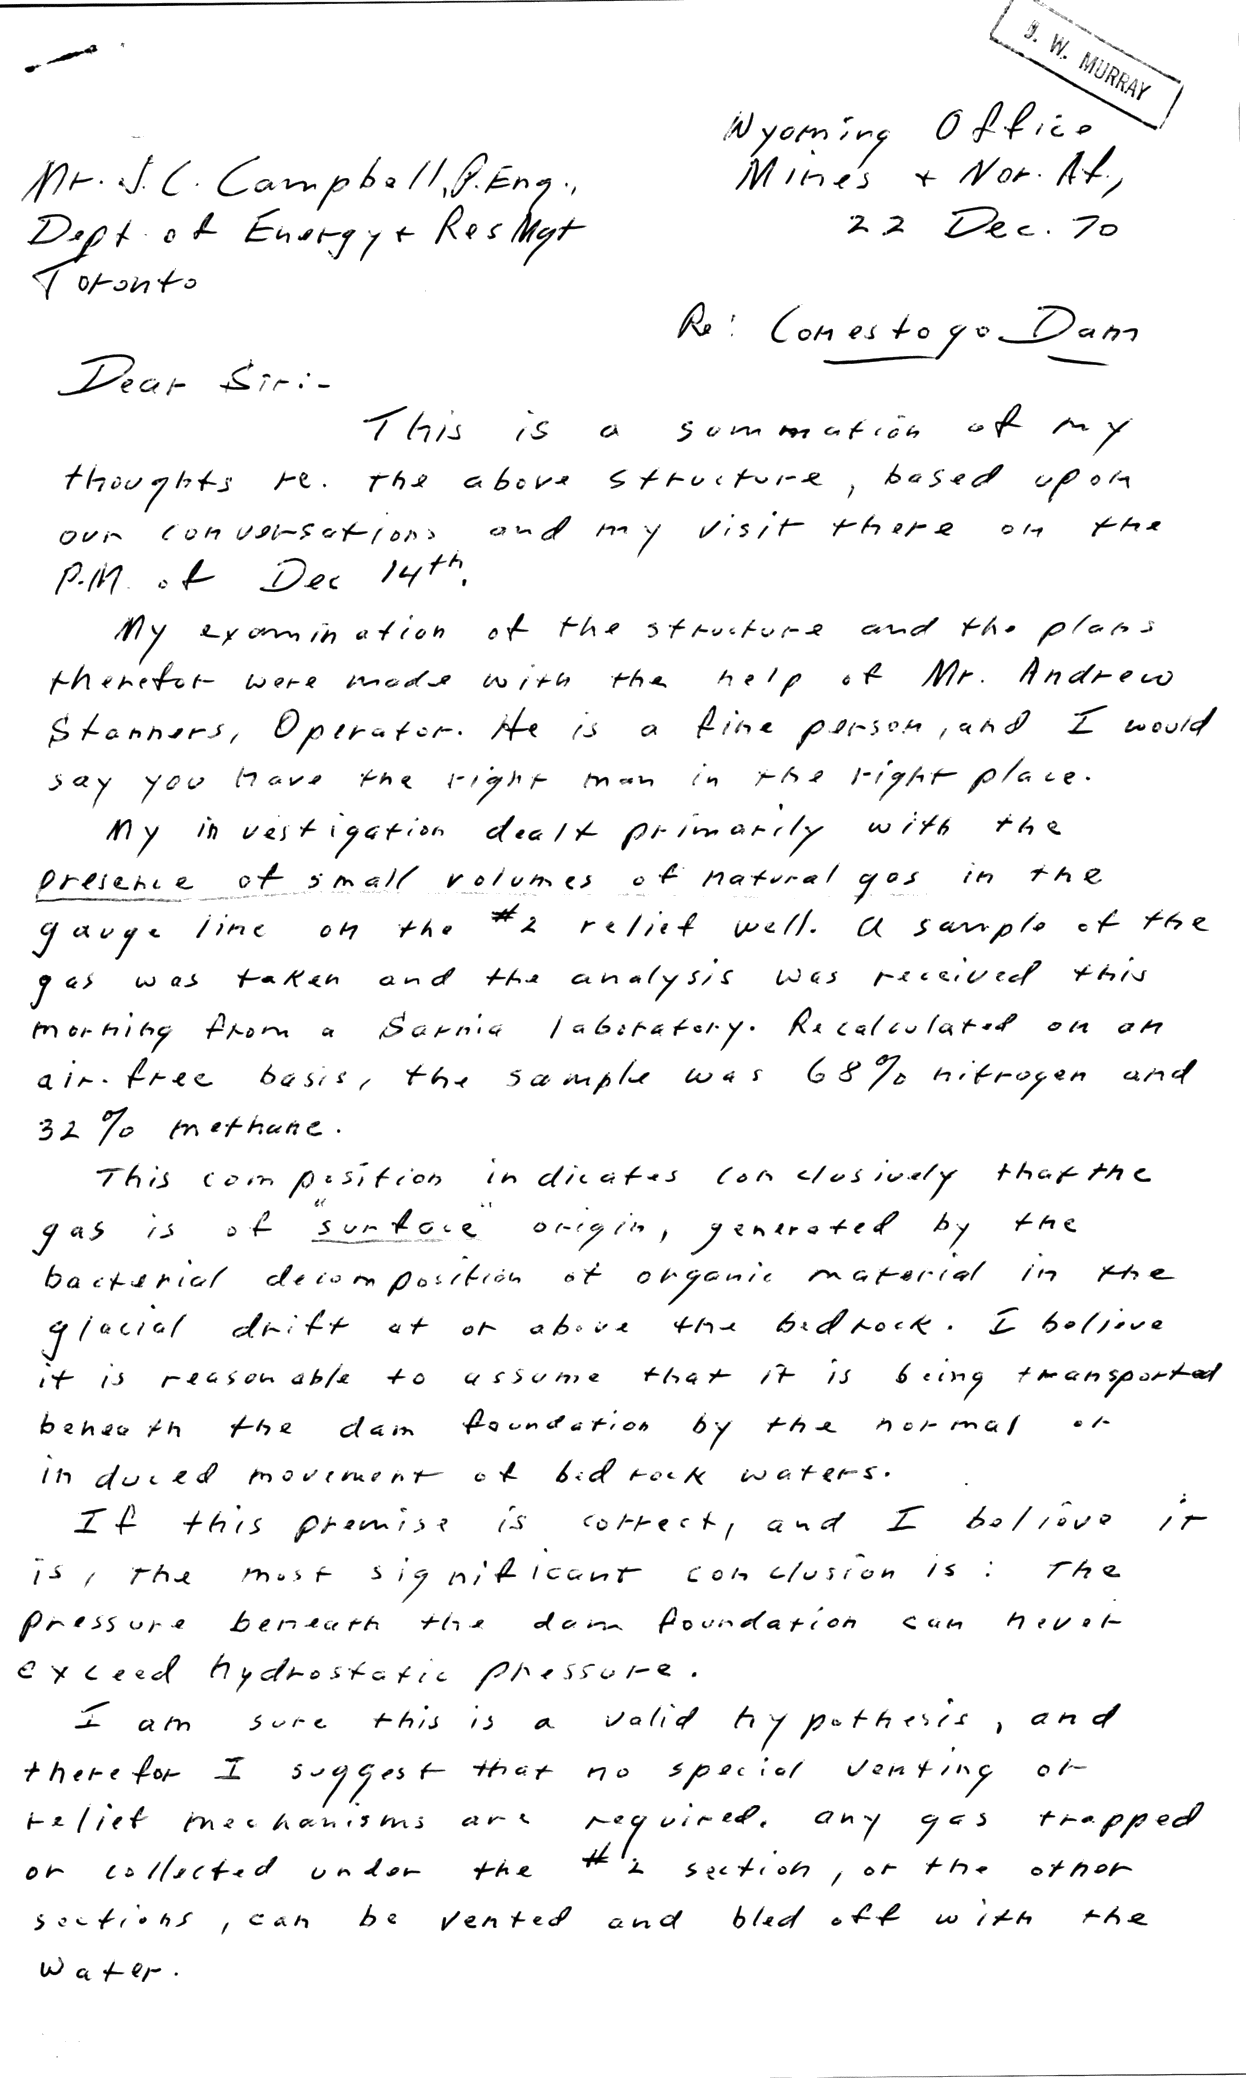 J. W. MURRAY
Wyoming Office
Mines + Nor. Af.,
22 Dec. 70
Mr. J. C. Campbell, P.Eng.,
Dept. of Energy + Res Mgt
Toronto
Re: Conestogo Dam
Dear Sir:-
This is a summation of my
thoughts re. the above structure, based upon
our conversations and my visit there on the
P.M. of Dec 14th.
My examination of the structure and the plans
therefor were made with the help of Mr. Andrew
Stanners, Operator. He is a fine person, and I would
say you have the right man in the right place.
My investigation dealt primarily with the
presence of small volumes of natural gas in the
gauge line on the #2 relief well. A sample of the
gas was taken and the analysis was received this
morning from a Sarnia laboratory. Recalculated on an
air-free basis, the sample was 68% nitrogen and
32% methane.
This composition indicates conclusively that the
gas is of "surface" origin, generated by the
bacterial decomposition of organic material in the
glacial drift at or above the bedrock. I believe
it is reasonable to assume that it is being transported
beneath the dam foundation by the normal or
induced movement of bedrock waters.
If this premise is correct, and I believe it
is, the most significant conclusion is: The
pressure beneath the dam foundation can never
exceed hydrostatic pressure.
I am sure this is a valid hypothesis, and
therefor I suggest that no special venting or
relief mechanisms are required. Any gas trapped
or collected under the #2 section, or the other
sections, can be vented and bled off with the
water.